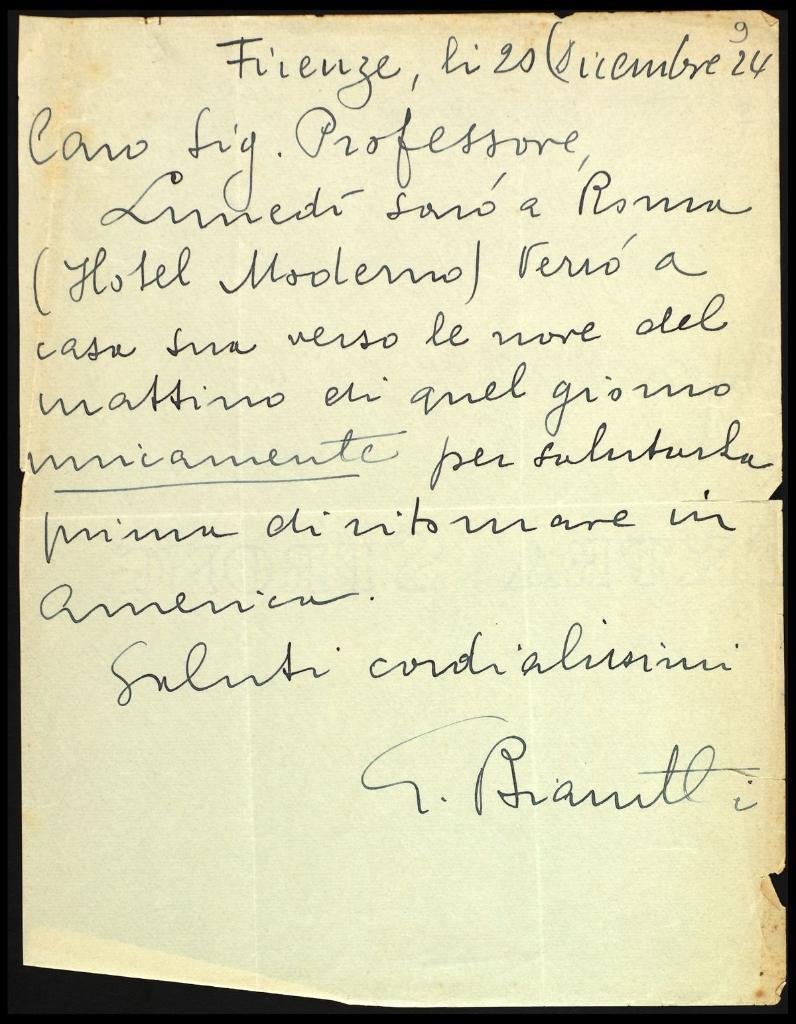 9
Firenze, li 20 Dicembre 24
Caro Sig. Professore,
Lunedì sarò a Roma
(Hotel Moderno) Verrò a
casa sua verso le nove del
mattino di quel giorno
unicamente per salutarla
prima di ritornare in
America.
Saluti cordialissimi
G.